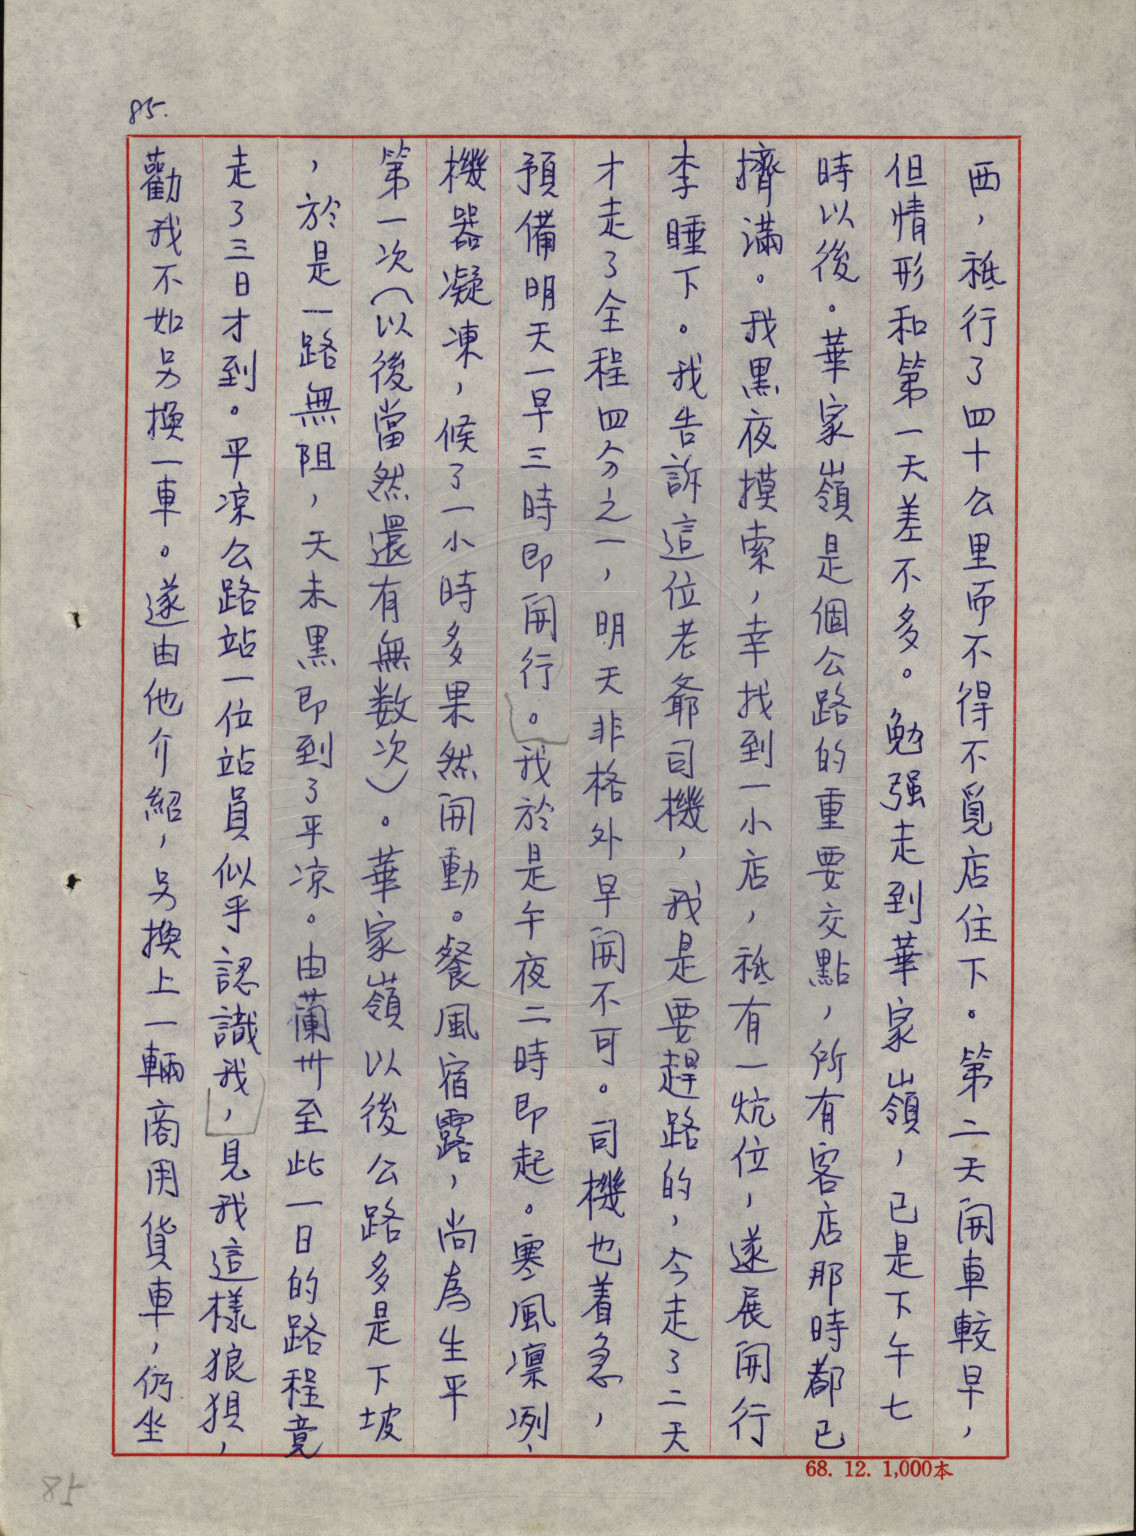 85.
西，祗行了四十公里而不得不覓店住下。第二天開車較早，
但情形和第一天差不多。勉强走到華家嶺，已是下午七
時以後。華家嶺是個公路的重要交點，所有客店那時都已
擠滿。我黑夜摸索，幸找到一小店，祗有一炕位，遂展開行
李睡下。我告訴這位老爺司機，我是要趕路的，今走了二天
才走了全程四分之一，明天非格外早開不可。司機也着急，
預備明天一早三時即開行。我於是午夜二時即起。寒風凛冽，
機器凝凍，候了一小時多果然開動。餐風宿露，尚為生平
第一次（以後當然還有無数次）。華家嶺以後公路多是下坡
，於是一路無阻，天未黑即到了平凉。由蘭州至此一日的路程竟
走了三日才到。平凉公路站一位站員似乎認識我，見我這樣狼狽，
勸我不如另換一車。遂由他介紹，另換上一輛商用貨車，仍坐
68. 12. 1,000本
85